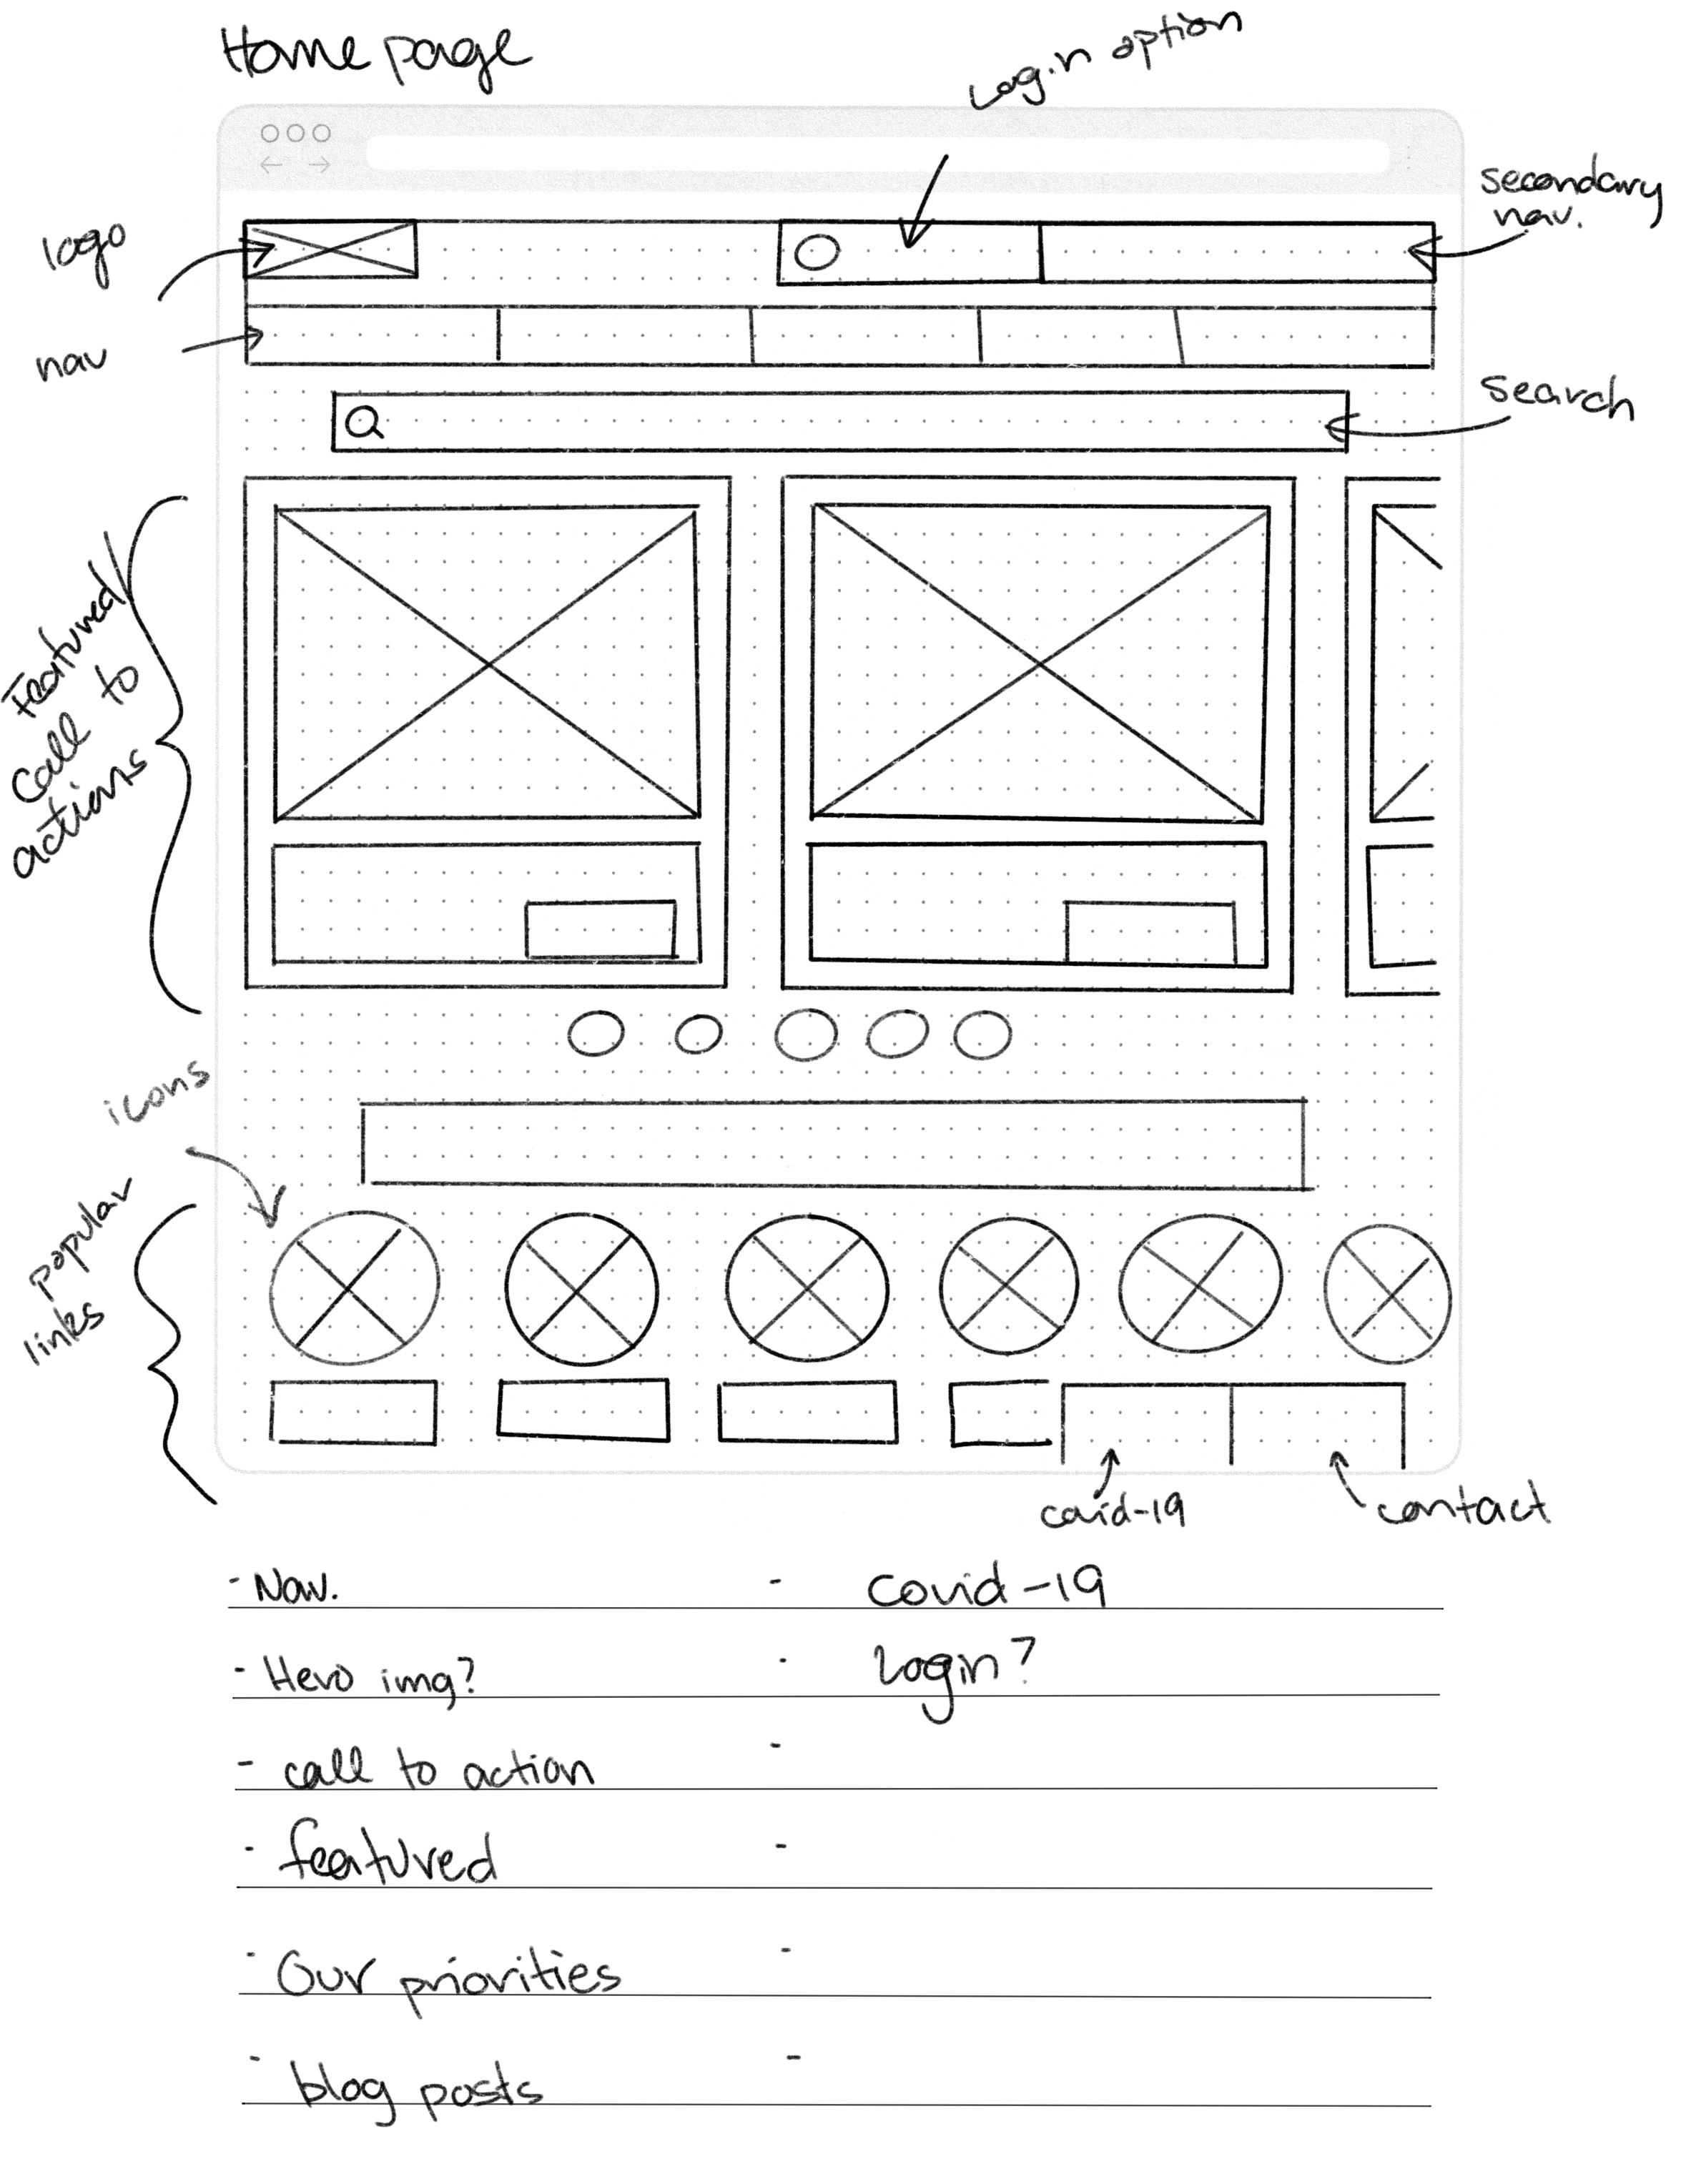 Home page
Login option
secondary
nav.
logo
nav
search
Featured/
call to
actions
icons
popular
links
covid-19
contact
- Nav.
- covid-19
- Hero img?
- Login?
- call to action
-
- featured
-
- Our priorities
-
- blog posts
-